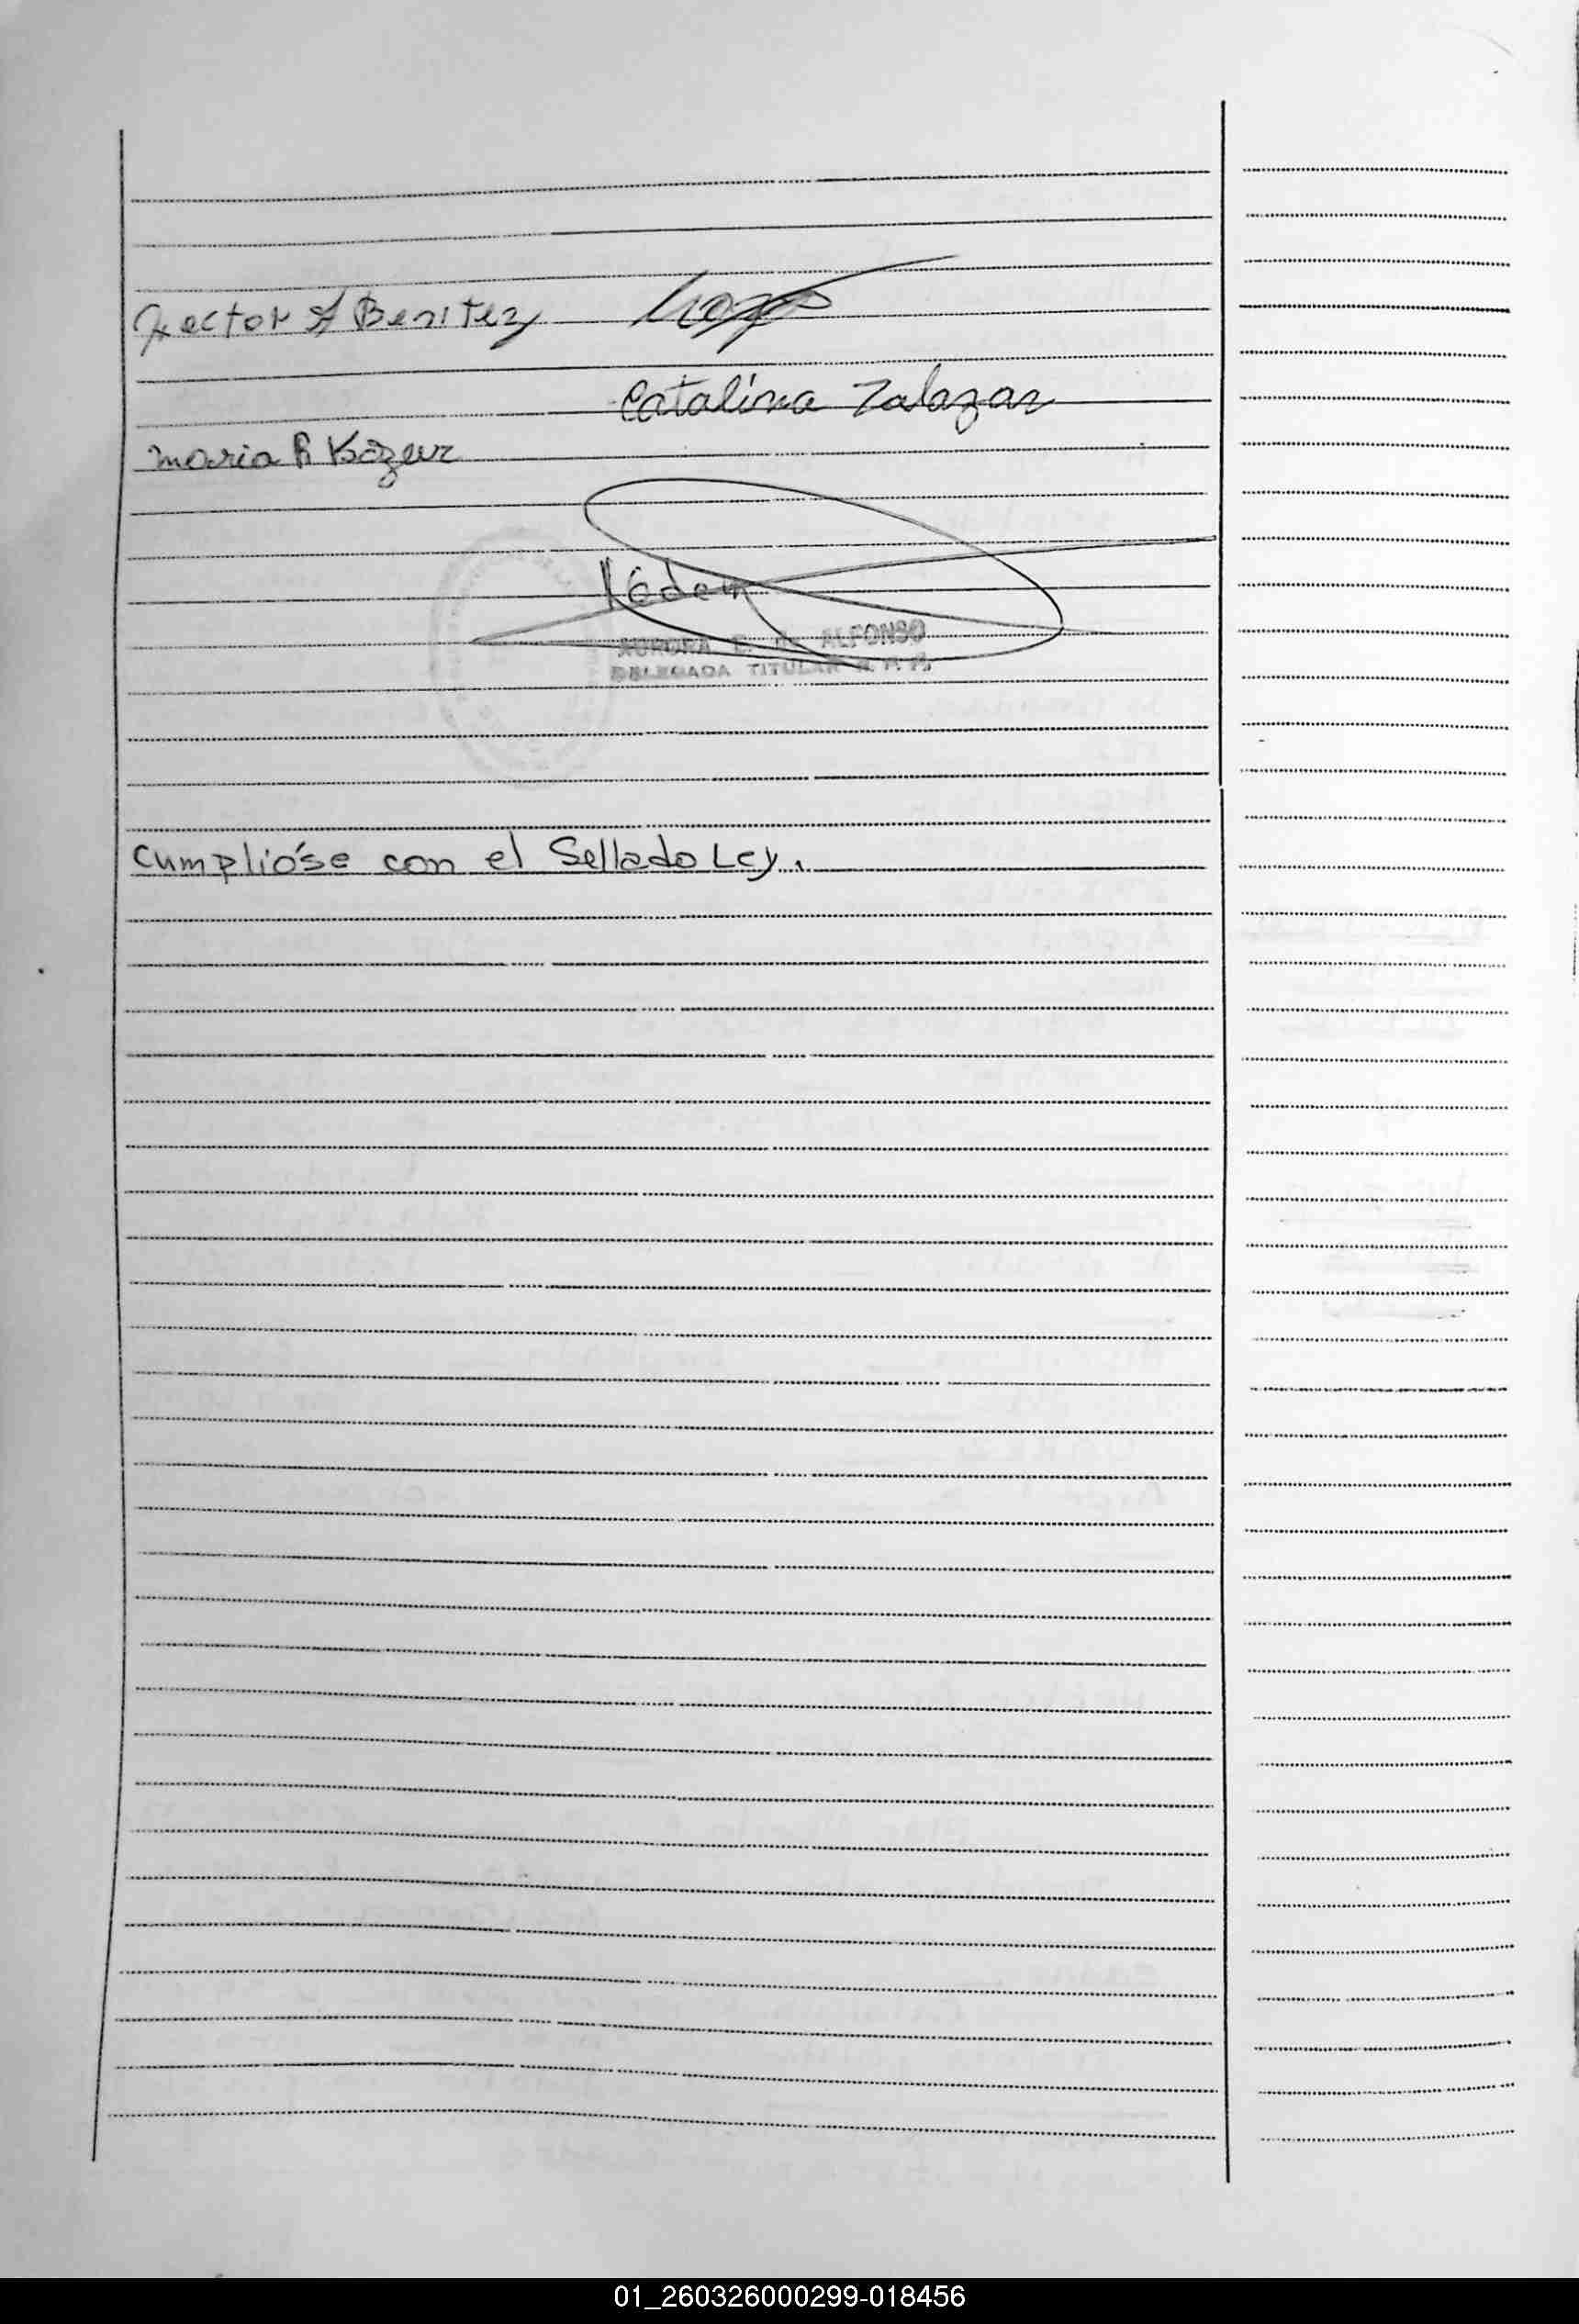 Hector A Benitez
Catalina Zalazar
maria R
AURORA E. A. ALFONSO
DELEGADA TITULAR R. P. P.
Cumplióse con el Sellado Ley.
01_260326000299-018456